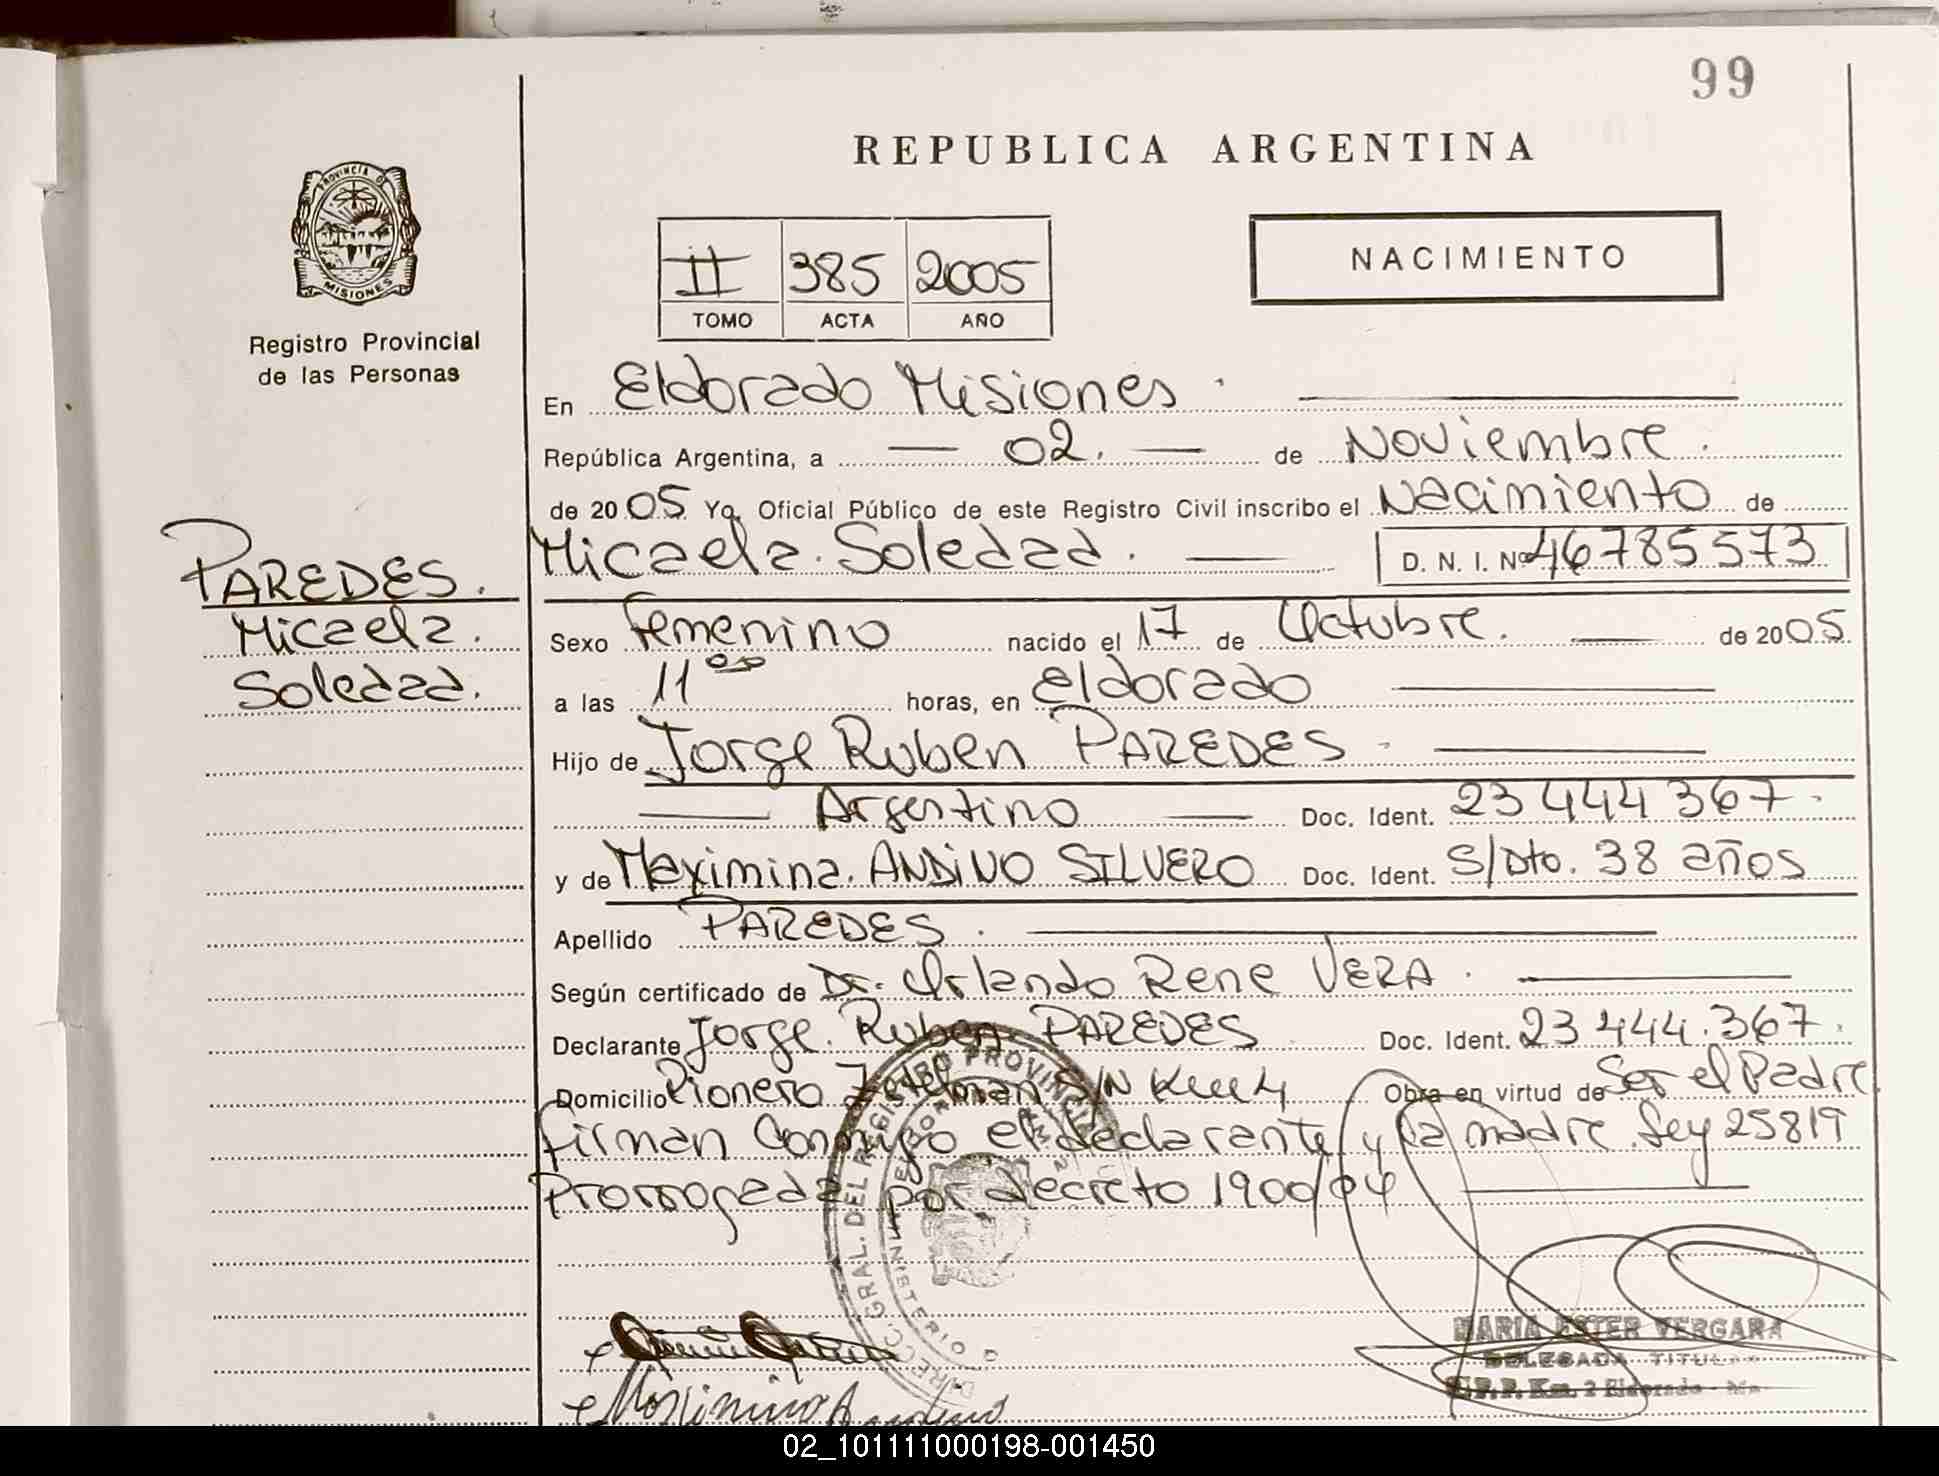 99
REPUBLICA ARGENTINA
PROVINCIA DE
MISIONES
Registro Provincial
de las Personas
II 385 2005
TOMO ACTA AÑO
NACIMIENTO
En Eldorado Misiones.
República Argentina, a — 02. — de Noviembre.
de 2005 Yo, Oficial Público de este Registro Civil inscribo el Nacimiento de
Micaela. Soledad. — D. N. I. Nº 46785573
PAREDES.
Micaela.
Soledad.
Sexo Femenino nacido el 17 de Octubre. — de 2005
a las 11 00 horas, en Eldorado —
Hijo de Jorge Ruben PAREDES - —
— Argentino — Doc. Ident. 23 444 367.
y de Maximina. ANDINO SILVERO Doc. Ident. S/Dto. 38 años
Apellido PAREDES. —
Según certificado de Dr. Orlando Rene VERA. —
Declarante Jorge. Ruben PAREDES Doc. Ident. 23 444.367.
Domicilio Pionero S/N Km 4 Obra en virtud de Ser el Padre
firman Conmigo el declarante y la madre. Ley 25819
Prorrogada por decreto 1900/04 —
DIRECC. GRAL. DEL REGISTRO PROVINCIAL
MINISTERIO D
MARIA ESTER VERGARA
DELEGADA TITULAR
R.P.P. Km. 2 Eldorado - Mn
02_101111000198-001450